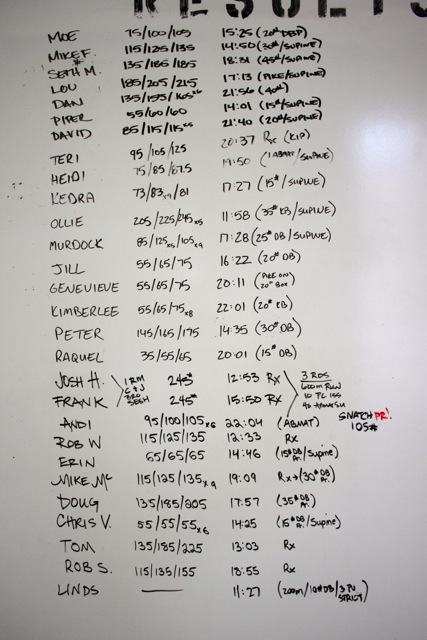 RESULTS
MOE 75/100/105 15:25 (20# DBP)
MIKE F. 115/125/135 14:50 (30#/SUPINE)
SETH M. 135/185/185 18:31 (45#/SUPINE)
LOU 185/205/215 17:13 (PIKE/SUPINE)
DAN 135/155/165x6 21:56 (40#)
PIPER 55/60/60 14:01 (15#/SUPINE)
DAVID 85/115/115 21:40 (20#/SUPINE)
20:37 Rx (KIP)
TERI 95/105/125 19:50 (1 ABMAT/SUPINE)
HEIDI 75/85/87.5
K'EDRA 73/83x9/81 17:27 (15#/SUPINE)
OLLIE 205/225/245x5 11:58 (35# KB/SUPINE)
MURDOCK 85/125x5/105x9 17:28 (25# DB/SUPINE)
JILL 55/65/75 16:22 (20# DB)
GENEVIEVE 55/65/75 20:11 (PIKE ON 20" BOX)
KIMBERLEE 55/65/75x8 22:01 (20# KB)
PETER 145/165/175 14:35 (30# DB)
RAQUEL 35/55/65 20:01 (15# DB)
JOSH H. 1RM C+J 245# 12:53 Rx 3 RDS 600m RUN
FRANK 245# 15:50 Rx 10 PC 155
ANDI 95/100/105x6 22:04 (ABMAT) SNATCH PR! 105#
ROB W 115/125/135 12:33 Rx
ERIN 65/65/65 14:46 (15# DB/Supine)
MIKE Mc 115/125/135x9 19:09 Rx→(30# DB)
DOUG 135/185/205 17:57 (35# DB)
CHRIS V. 55/55/55x6 14:25 (15# DB/Supine)
TOM 135/185/225 13:03 Rx
ROB S. 115/135/155 18:55 Rx
LINDS — 11:27 (200m/10# DB/3 PU STRICT)